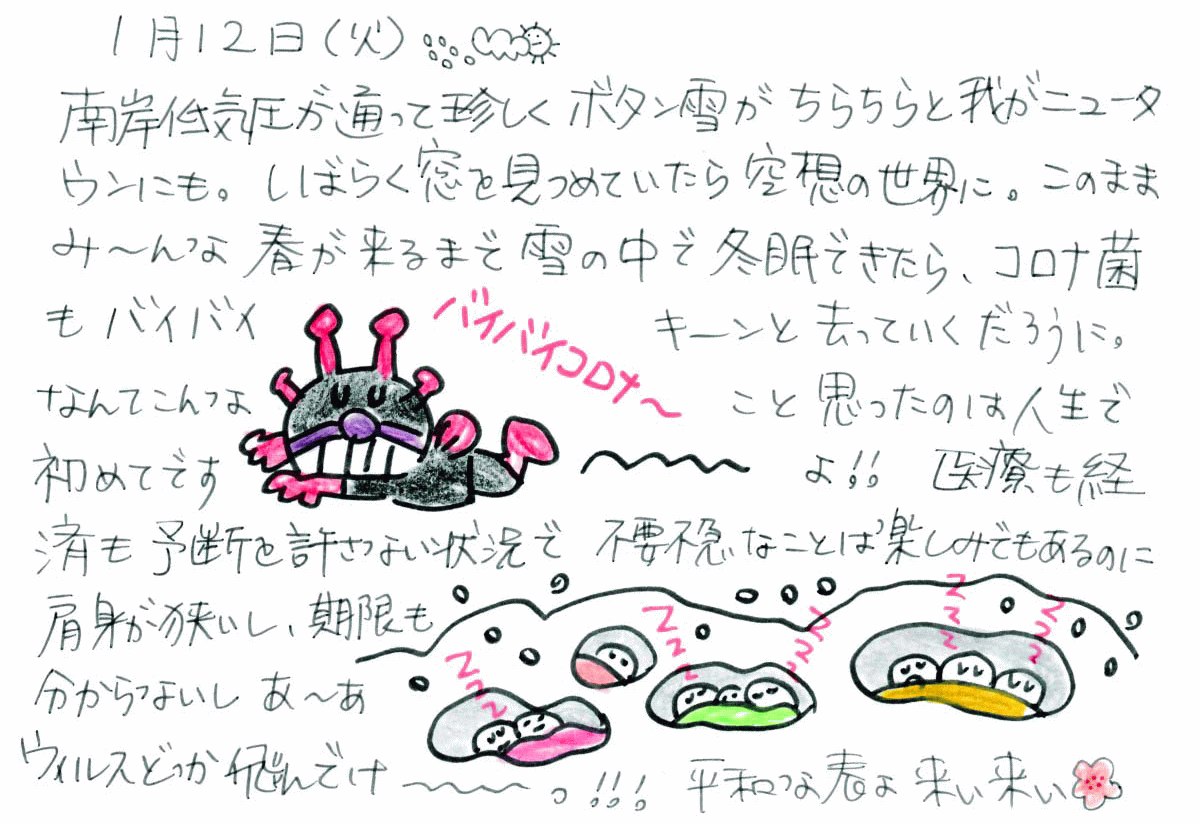 1月12日(火)
南岸低気圧が通って珍しくボタン雪がちらちらと我がニュータ
ウンにも。しばらく窓を見つめていたら空想の世界に。このまま
み〜んな春が来るまで雪の中で冬眠できたら、コロナ菌
もバイバイキーンと去っていくだろうに。
バイバイコロナ〜
なんてこんなこと思ったのは人生で
初めてです〜〜〜よ!! 医療も経
済も予断を許さない状況で不要不急なことは楽しみでもあるのに
肩身が狭いし、期限も
分からないしあ〜あ
ZZZ
ZZZZ
ZZZZ
ZZZ
ZZZ
ウィルスどっか飛んでけ〜〜〜。!!! 平和な春よ来い来い